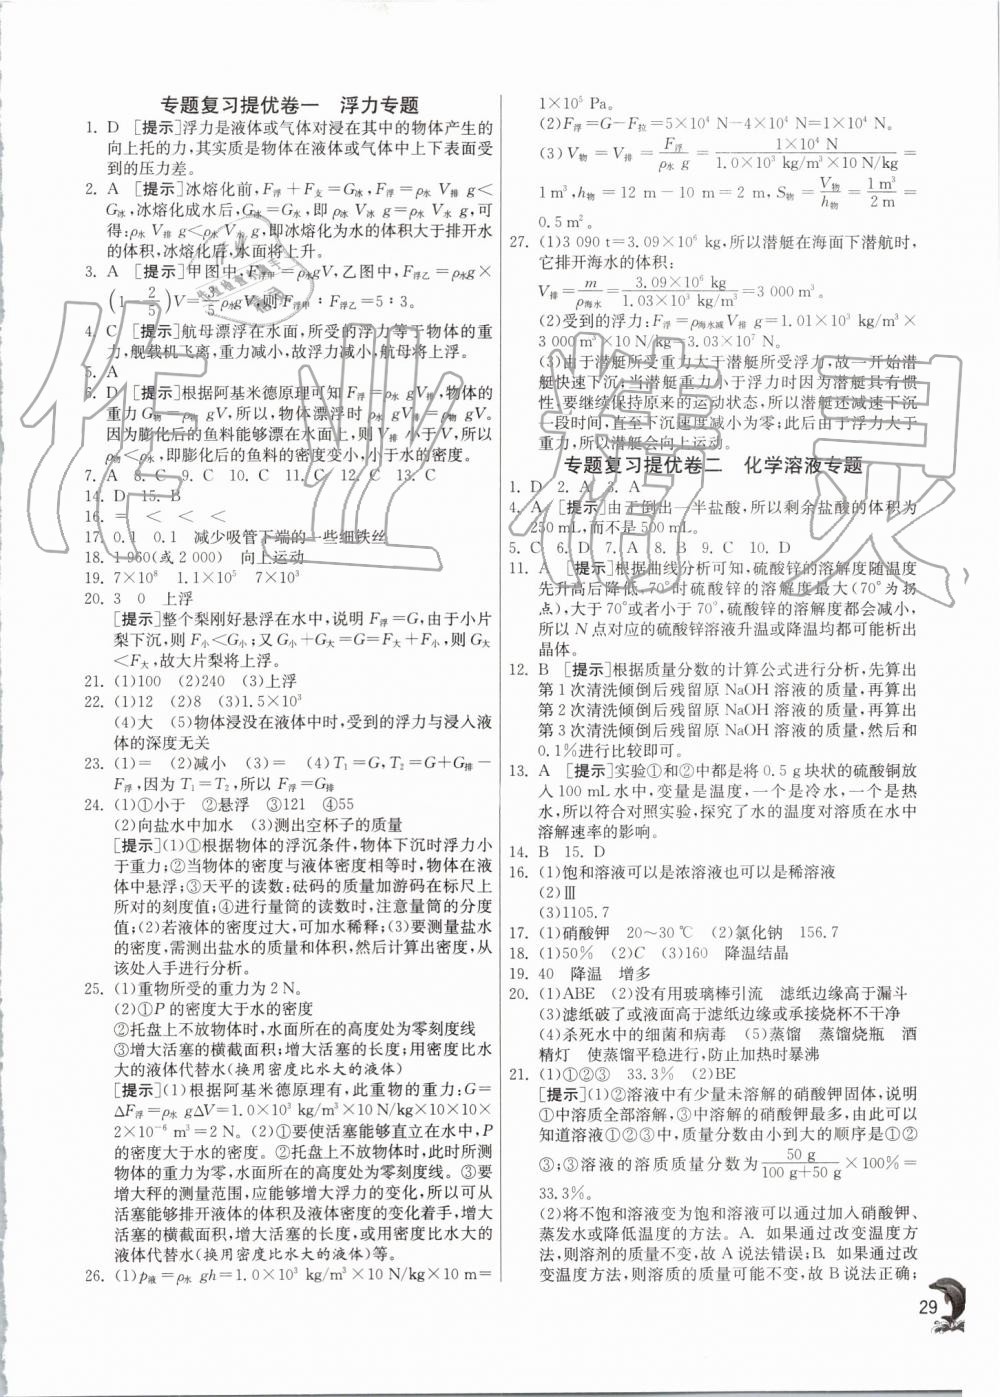 专题复习提优卷一　浮力专题
1. D [提示]浮力是液体或气体对浸在其中的物体产生的
向上托的力,其实质是物体在液体或气体中上下表面受
到的压力差。
2. A [提示]冰熔化前,F浮＋F支＝G冰,F浮＝ρ水 V排 g＜
G冰,冰熔化成水后,G冰＝G水,即 ρ冰 V冰 g＝ρ水 V水 g,可
得:ρ水 V排 g＜ρ水 V水 g,即冰熔化为水的体积大于排开水
的体积,冰熔化后,水面将上升。
3. A [提示]甲图中,F浮甲＝ρ水gV,乙图中,F浮乙＝ρ水g×
(1－2/5)V＝3/5ρ水gV,则 F浮甲∶F浮乙＝5∶3。
4. C [提示]航母漂浮在水面,所受的浮力等于物体的重
力,舰载机飞离,重力减小,故浮力减小,航母将上浮。
5. A
6. D [提示]根据阿基米德原理可知 F浮＝ρ水 gV排,物体的
重力G物＝ρ物 gV,所以,物体漂浮时 ρ水 gV排＝ρ物 gV。
因为膨化后的鱼料能够漂浮在水面,则 V排 小于 V,所以
ρ物＜ρ水,即膨化后的鱼料的密度变小,小于水的密度。
7. A 8. C 9. C 10. C 11. C 12. C 13. C
14. D 15. B
16. ＝ ＜ ＜ ＜
17. 0.1 0.1 减少吸管下端的一些细铁丝
18. 1 960(或 2 000) 向上运动
19. 7×10⁸ 1.1×10⁵ 7×10³
20. 3 0 上浮
[提示]整个梨刚好悬浮在水中,说明 F浮＝G,由于小片
梨下沉,则 F小＜G小;又 G小＋G大＝G＝F大＋F小,则 G大
＜F大,故大片梨将上浮。
21. (1)100 (2)240 (3)上浮
22. (1)12 (2)8 (3)1.5×10³
(4)大 (5)物体浸没在液体中时,受到的浮力与浸入液
体的深度无关
23. (1)＝ (2)减小 (3)＝ (4)T₁＝G,T₂＝G＋G排－
F浮,因为 T₁＝T₂,所以 F浮＝G排
24. (1)①小于 ②悬浮 ③121 ④55
(2)向盐水中加水 (3)测出空杯子的质量
[提示](1)①根据物体的浮沉条件,物体下沉时浮力小
于重力;②当物体的密度与液体密度相等时,物体在液
体中悬浮;③天平的读数:砝码的质量加游码在标尺上
所对的刻度值;④进行量筒的读数时,注意量筒的分度
值;(2)若液体的密度过大,可加水稀释;(3)要测量盐水
的密度,需测出盐水的质量和体积,然后计算出密度,从
该处入手进行分析。
25. (1)重物所受的重力为 2 N。
(2)①P 的密度大于水的密度
②托盘上不放物体时,水面所在的高度处为零刻度线
③增大活塞的横截面积;增大活塞的长度;用密度比水
大的液体代替水(换用密度比水大的液体)
[提示](1)根据阿基米德原理有,此重物的重力:G＝
ΔF浮＝ρ水 gΔV＝1.0×10³ kg/m³×10 N/kg×10×10×
2×10⁻⁶ m³＝2 N。(2)①要使活塞能够直立在水中,P
的密度大于水的密度。②托盘上不放物体时,此时所测
物体的重力为零,水面所在的高度处为零刻度线。③要
增大秤的测量范围,应能够增大浮力的变化,所以可从
活塞能够排开液体的体积及液体密度的变化着手,增大
活塞的横截面积、增大活塞的长度或用密度比水大的
液体代替水(换用密度比水大的液体)等。
26. (1)p液＝ρ水 gh＝1.0×10³ kg/m³×10 N/kg×10 m＝
1×10⁵ Pa。
(2)F浮＝G－F拉＝5×10⁴ N－4×10⁴ N＝1×10⁴ N。
(3)V物＝V排＝F浮/ρ水 g＝1×10⁴ N/1.0×10³ kg/m³×10 N/kg＝
1 m³,h物＝12 m－10 m＝2 m,S物＝V物/h物＝1 m³/2 m＝
0.5 m²。
27. (1)3 090 t＝3.09×10⁶ kg,所以潜艇在海面下潜航时,
它排开海水的体积:
V排＝m/ρ海水＝3.09×10⁶ kg/1.03×10³ kg/m³＝3 000 m³。
(2)受到的浮力:F浮＝ρ海水减V排 g＝1.01×10³ kg/m³×
3 000 m³×10 N/kg＝3.03×10⁷ N。
(3)由于潜艇所受重力大于潜艇所受浮力,故一开始潜
艇快速下沉;当潜艇重力小于浮力时因为潜艇具有惯
性,要继续保持原来的运动状态,所以潜艇还减速下沉
一段时间,直至下沉速度减小为零;此后由于浮力大于
重力,所以潜艇会向上运动。
专题复习提优卷二　化学溶液专题
1. D 2. A 3. A
4. A [提示]由于倒出一半盐酸,所以剩余盐酸的体积为
250 mL,而不是 500 mL。
5. C 6. D 7. A 8. B 9. C 10. D
11. A [提示]根据曲线分析可知,硫酸锌的溶解度随温度
先升高后降低,70°时硫酸锌的溶解度最大(70°为拐
点),大于 70°或者小于 70°,硫酸锌的溶解度都会减小,
所以 N 点对应的硫酸锌溶液升温或降温均都可能析出
晶体。
12. B [提示]根据质量分数的计算公式进行分析,先算出
第 1 次清洗倾倒后残留原 NaOH 溶液的质量,再算出
第 2 次清洗倾倒后残留原 NaOH 溶液的质量,再算出
第 3 次清洗倾倒后残留原 NaOH 溶液的质量,然后和
0.1％进行比较即可。
13. A [提示]实验①和②中都是将 0.5 g块状的硫酸铜放
入 100 mL 水中,变量是温度,一个是冷水,一个是热
水,所以符合对照实验,探究了水的温度对溶质在水中
溶解速率的影响。
14. B 15. D
16. (1)饱和溶液可以是浓溶液也可以是稀溶液
(2)Ⅲ
(3)1105.7
17. (1)硝酸钾 20～30 ℃ (2)氯化钠 156.7
18. (1)50％ (2)C (3)160 降温结晶
19. 40 降温 增多
20. (1)ABE (2)没有用玻璃棒引流 滤纸边缘高于漏斗
(3)滤纸破了或液面高于滤纸边缘或承接烧杯不干净
(4)杀死水中的细菌和病毒 (5)蒸馏 蒸馏烧瓶 酒
精灯 使蒸馏平稳进行,防止加热时暴沸
21. (1)①②③ 33.3％ (2)BE
[提示](1)②溶液中有少量未溶解的硝酸钾固体,说明
①中溶质全部溶解,③中溶解的硝酸钾最多,由此可以
知道溶液①②③中,质量分数由小到大的顺序是①②
③;③溶液的溶质质量分数为50 g/100 g＋50 g×100％＝
33.3％。
(2)将不饱和溶液变为饱和溶液可以通过加入硝酸钾、
蒸发水或降低温度的方法。A. 如果通过改变温度方
法,则溶剂的质量不变,故 A 说法错误;B. 如果通过改
变温度方法,则溶质的质量可能不变,故 B 说法正确;
29
作业精灵